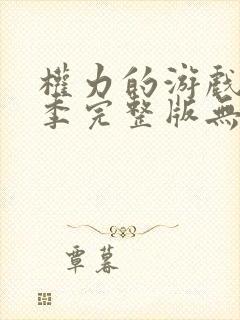 權力的游戲
季完整版無
覃暮